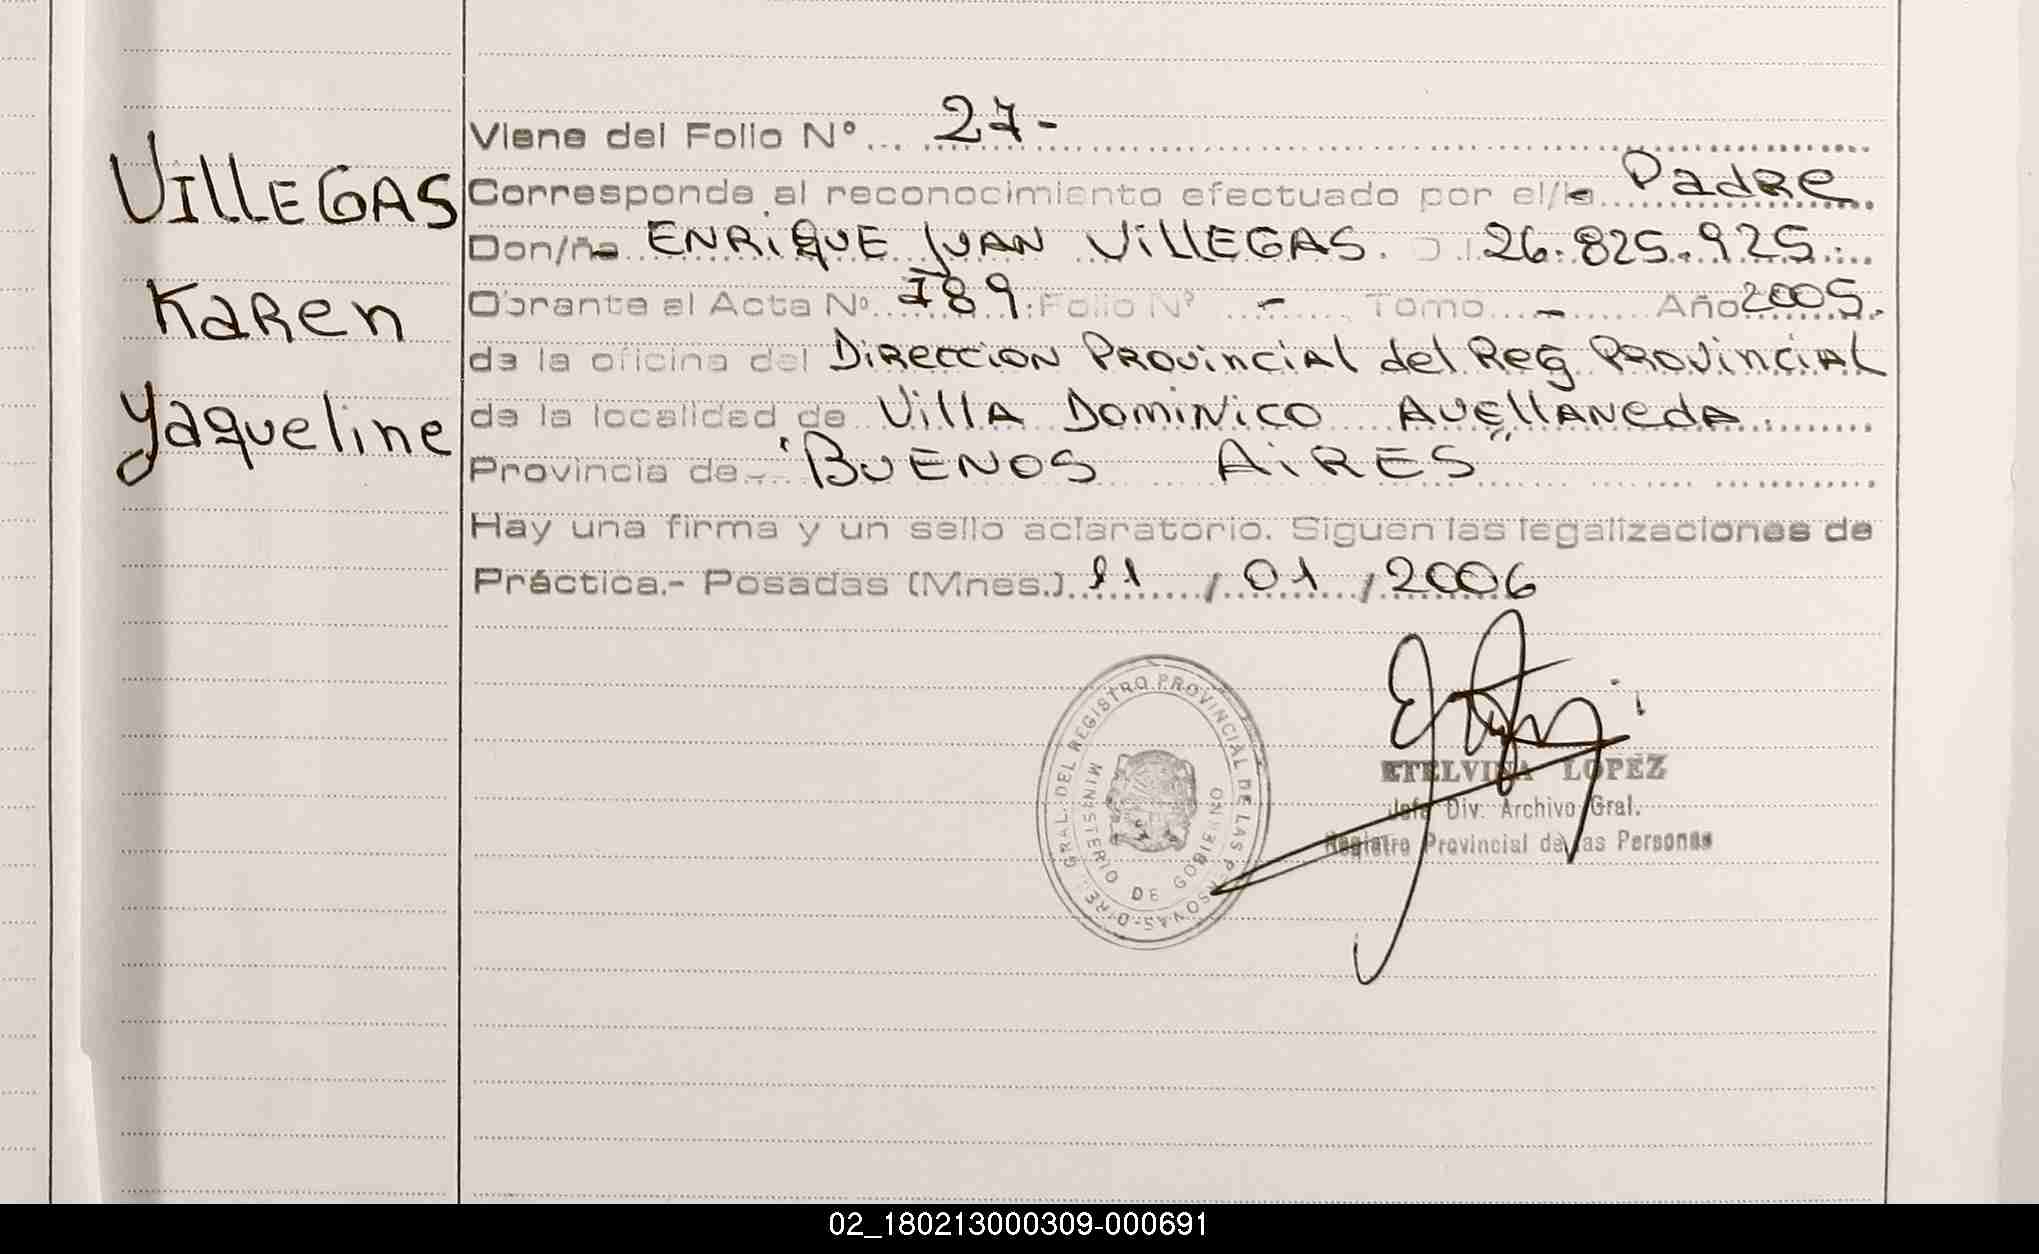 VILLEGAS
Karen
Yaqueline
Viene del Folio Nº ... 27-
Corresponde al reconocimiento efectuado por el/la Padre
Don/ña ENRIQUE JUAN VILLEGAS. 26.825.925
Obrante al Acta Nº 789. Folio Nº - Tomo - Año 2005.
de la oficina del Direccion Provincial del Reg Provincial
de la localidad de Villa Dominico Avellaneda
Provincia de "BUENOS AIRES"
Hay una firma y un sello aclaratorio. Siguen las legalizaciones de
Práctica.- Posadas (Mnes.) 11 / 01 / 2006
DIRE. GRAL. DEL REGISTRO PROVINCIAL DE LAS PERSONAS-
MINISTERIO DE GOBIERNO
ETELVINA LOPEZ
Jefe Div. Archivo Gral.
Registro Provincial de las Personas
02_180213000309-000691